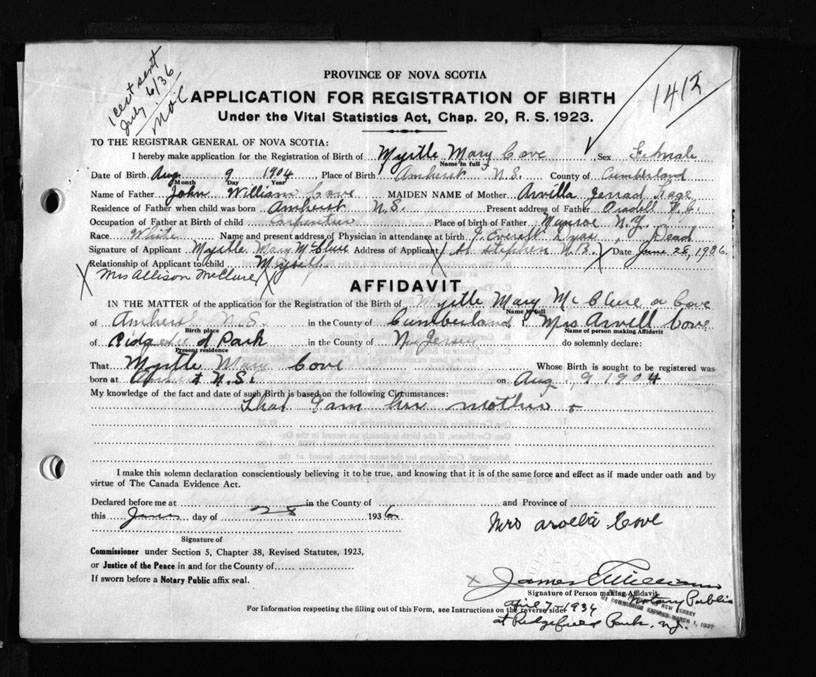 1 cert sent
July 6/36
1412
PROVINCE OF NOVA SCOTIA
APPLICATION FOR REGISTRATION OF BIRTH
Under the Vital Statistics Act, Chap. 20, R. S. 1923.
TO THE REGISTRAR GENERAL OF NOVA SCOTIA:
I hereby make application for the Registration of Birth of Myrtle Mary Cove Sex Female
Name in full
Date of Birth Aug 9 1904 Place of Birth Amherst N.S. County of Cumberland
Month Day Year
Name of Father John William Cove MAIDEN NAME of Mother Arvilla Page
Residence of Father when child was born Amherst N.S. Present address of Father
Occupation of Father at Birth of child Carpenter Place of birth of Father
Race White Name and present address of Physician in attendance at birth J. Everett Dead
Signature of Applicant Myrtle Mary McClure Address of Applicant St Stephen N.B. Date June 25, 1936
Relationship of Applicant to child Myself
Mrs Allison McClure
AFFIDAVIT
IN THE MATTER of the application for the Registration of the Birth of Myrtle Mary McClure a Cove
Name in full
of Amherst N.S. in the County of Cumberland Mrs Cove
Birth place Name of person making Affidavit
of Park in the County of New Jersey do solemnly declare:
Present residence
That Myrtle Mary Cove Whose Birth is sought to be registered was
born at N.S. on Aug. 9 1904
My knowledge of the fact and date of such Birth is based on the following Circumstances:
That I am her mother
I make this solemn declaration conscientiously believing it to be true, and knowing that it is of the same force and effect as if made under oath and by
virtue of The Canada Evidence Act.
Declared before me at in the County of and Province of
this June day of 28 1936
Mrs Cove
Signature of
Commissioner under Section 5, Chapter 38, Revised Statutes, 1923,
or Justice of the Peace in and for the County of
If sworn before a Notary Public affix seal.
James Williams
Signature of Person making Affidavit
Notary Public
For Information respecting the filling out of this Form, see Instructions on the reverse side.
April 7-1936
at Ridgefield Park, N.J.